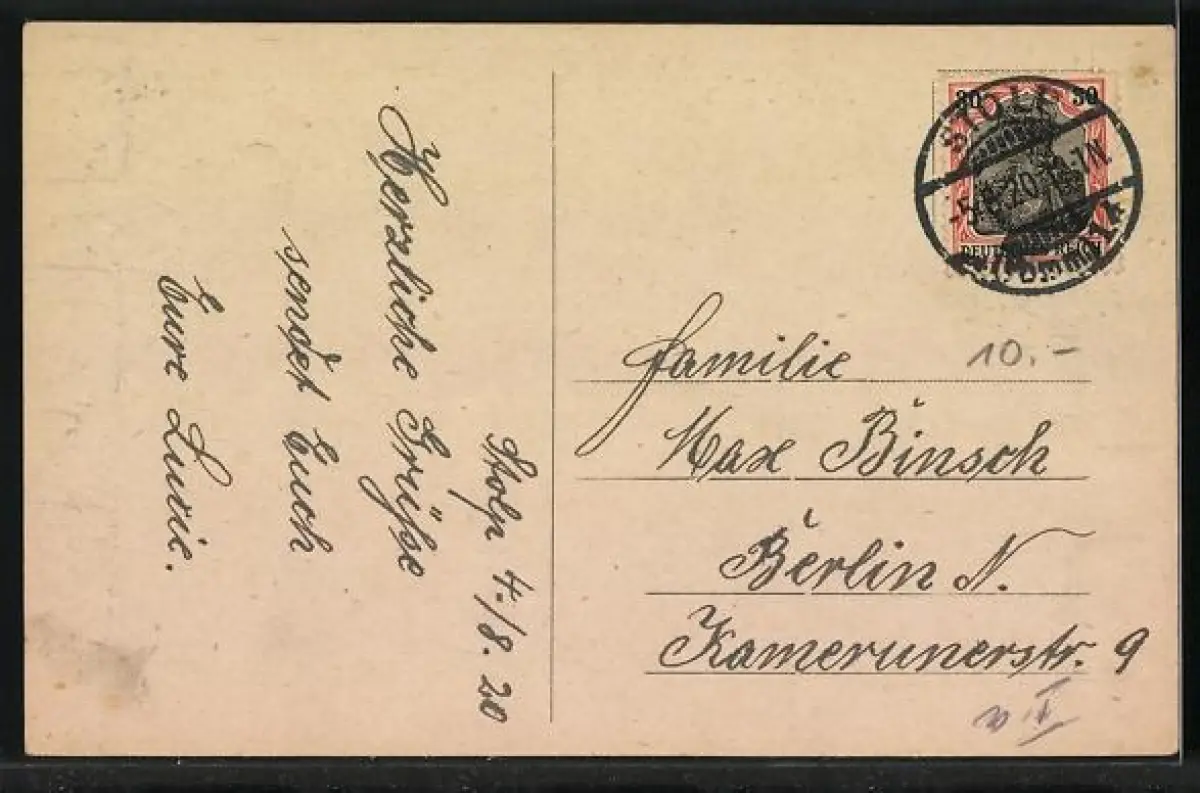 Stolp 4./8. 20
Herzliche Grüße
sendet Euch
Eure Luzie.
30 30
DEUTSCHES REICH
STOLP
-5.8.20. 6-7N.
(Pomm) 1
10.-
Familie
Max Binsch
Berlin N.
Kamerunerstr. 9